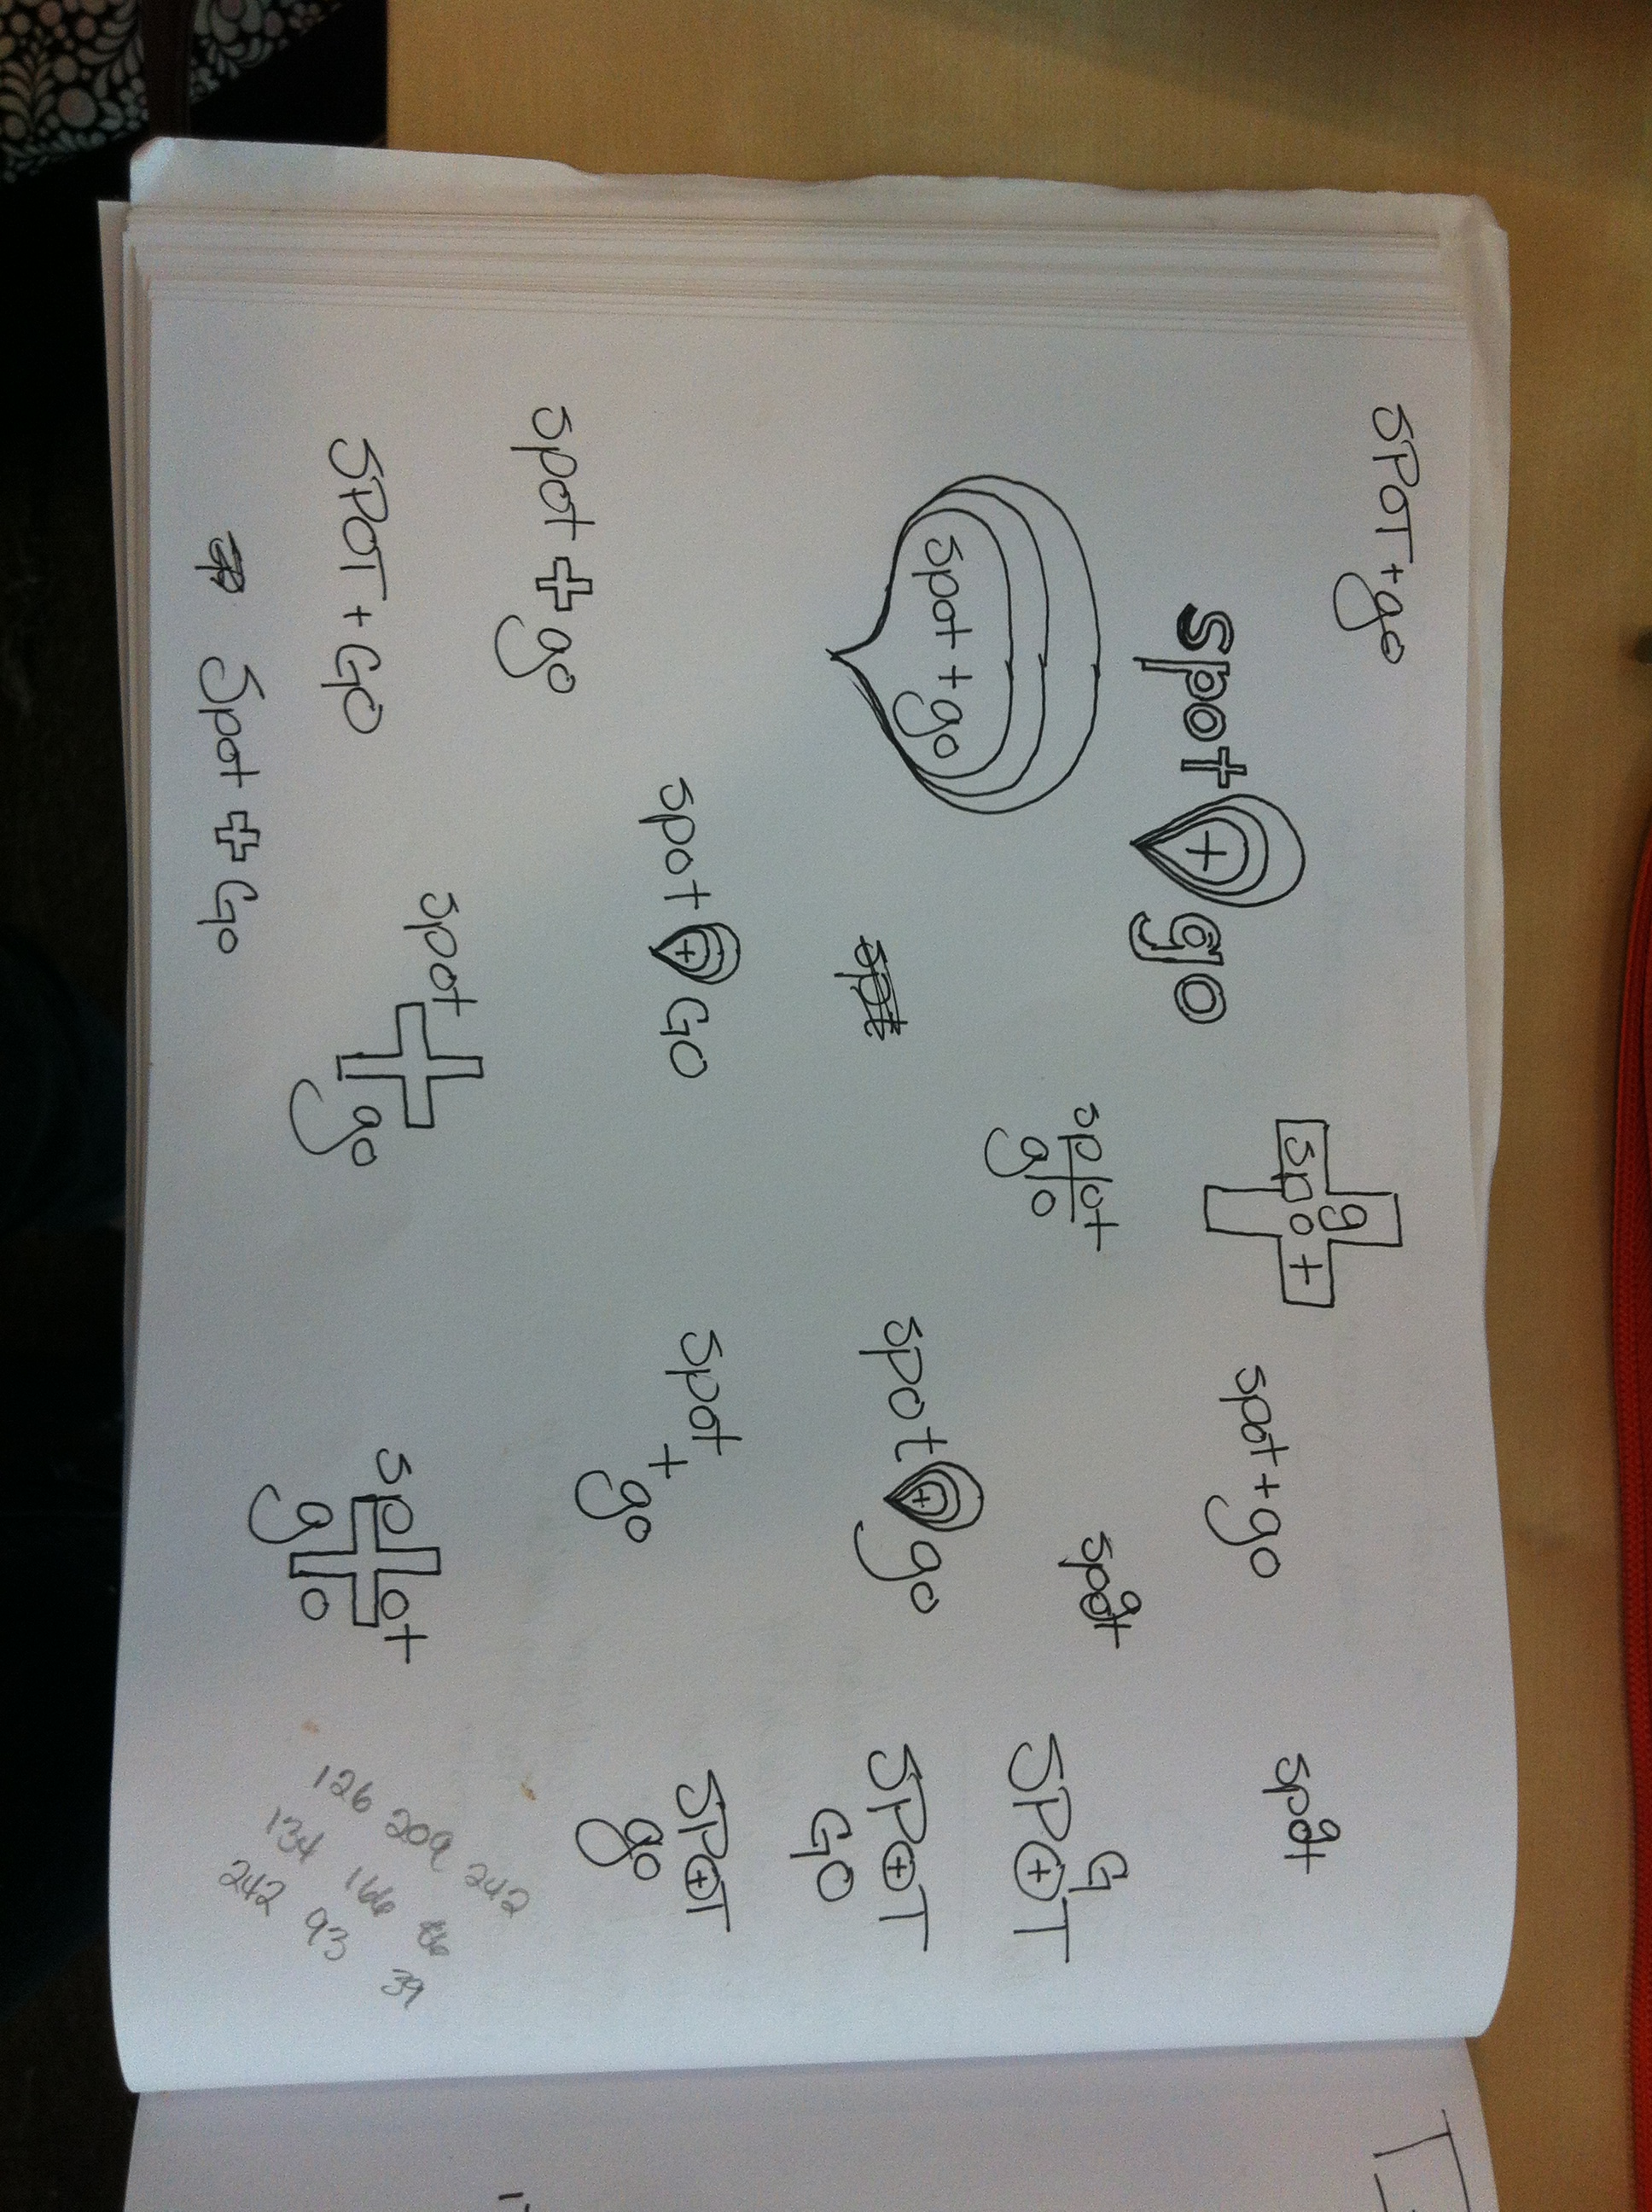 SPOT+go
spot + go
spot+go
spot + go
SPOT + GO
Spot + Go
g
spot
spot
go
spot + GO
spot
+
go
spot+go
spot + go
spot
+
go
spot
go
g
spot
g
spot
G
SPOT
SPOT
GO
SPOT
go
126 209 242
134 166
242 93 39